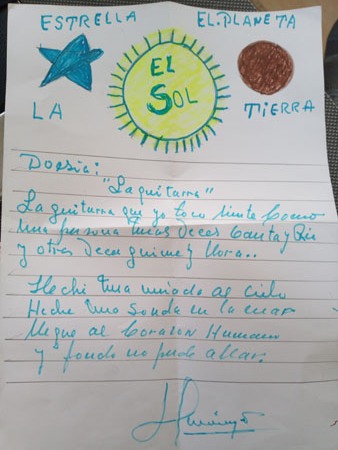 ESTRELLA
EL PLANETA
EL
SOL
LA
TIERRA
Poesia:
"La guitarra"
La guitarra que yo toco siente como
una persona unas veces canta y Ríe
y otras veces gime y llora..
Heché una al cielo
Heche una sonda en la mar
llegue al Corazon Humano
y fondo no pude allar.